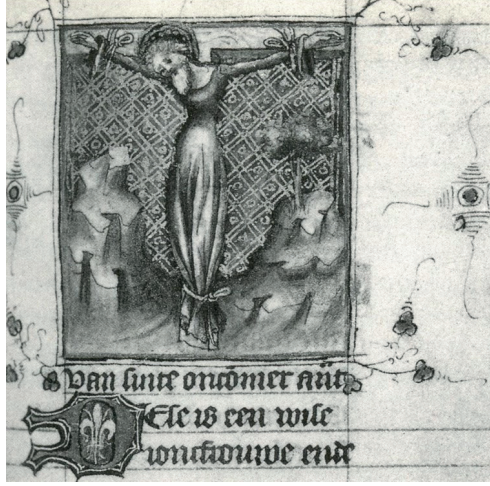 Van sinte oncōmer an̄t
DEse is een wise
ioncfrouwe ende